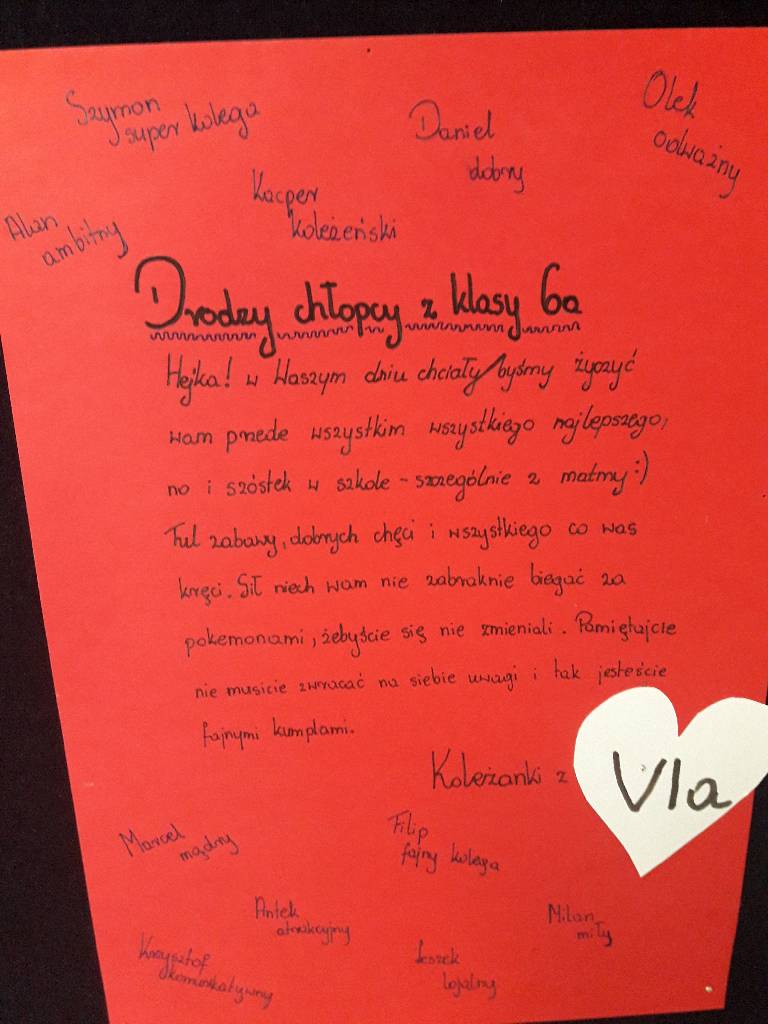 Szymon
super kolega
Daniel
dobry
Olek
odważny
Kacper
koleżeński
Alan
ambitny
Drodzy chłopcy z klasy 6a
Hejka! w Waszym dniu chciały/byśmy życzyć
wam przede wszystkim wszystkiego najlepszego,
no i szóstek w szkole - szczególnie z matmy :)
Ful zabawy, dobrych chęci i wszystkiego co was
kręci. Sił niech wam nie zabraknie biegać za
pokemonami, żebyście się nie zmieniali. Pamiętajcie
nie musicie zwracać na siebie uwagi i tak jesteście
fajnymi kumplami.
Koleżanki z VIa
Marcel
mądry
Filip
fajny kolega
Antek
atrakcyjny
Milan
miły
Krzysztof
komunikatywny
Leszek
lojalny